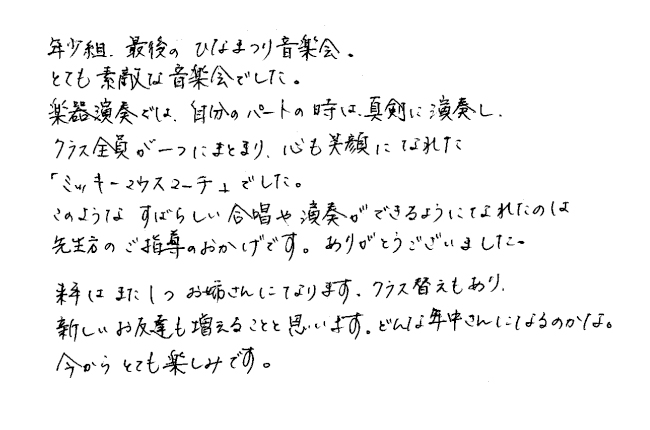 年少組、最後の ひなまつり音楽会。
とても素敵な音楽会でした。
楽器演奏では、自分のパートの時は、真剣に演奏し、
クラス全員が一つにまとまり、心も笑顔になれた
「ミッキーマウスマーチ」でした。
このような すばらしい合唱や演奏ができるようになれたのは
先生方のご指導のおかげです。ありがとうございました。
来年はまた1つお姉さんになります。クラス替えもあり、
新しいお友達も増えることと思います。どんな年中さんになるのかな。
今からとても楽しみです。